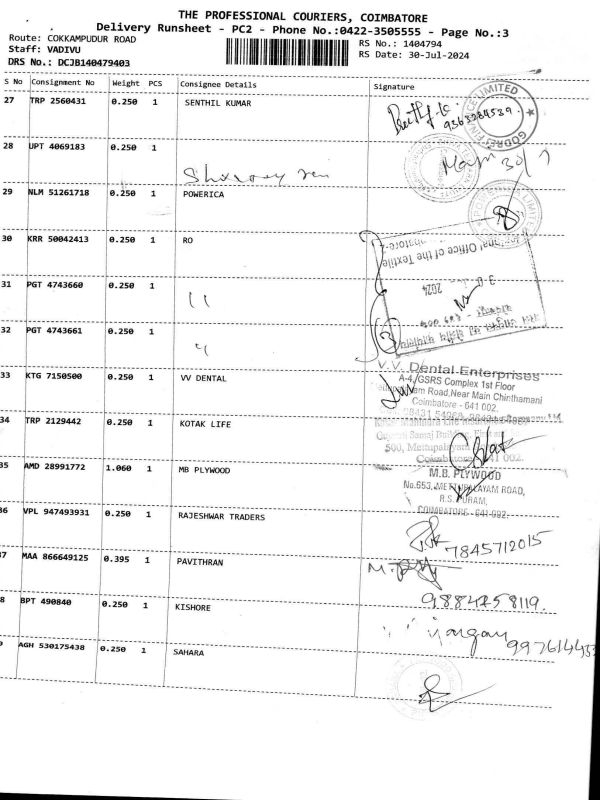 THE PROFESSIONAL COURIERS, COIMBATORE
Delivery Runsheet - PC2 - Phone No.:0422-3505555 - Page No.:3
Route: COKKAMPUDUR ROAD
RS No.: 1404794
Staff: VADIVU
RS Date: 30-Jul-2024
DRS No.: DCJB140479403
S No Consignment No Weight PCS Consignee Details Signature
27 TRP 2560431 0.250 1 SENTHIL KUMAR
9363284539
28 UPT 4069183 0.250 1
29 NLM 51261718 0.250 1 POWERICA
30 KRR 50042413 0.250 1 RO
Office of the Textile
2024
31 PGT 4743660 0.250 1 "
32 PGT 4743661 0.250 1 "
V.V. Dental Enterprises
33 KTG 7150500 0.250 1 VV DENTAL
A-4, GSRS Complex 1st Floor
Road, Near Main Chinthamani
Coimbatore - 641 002.
34 TRP 2129442 0.250 1 KOTAK LIFE
500, Mettupalayam
Coimbatore 641 002.
35 AMD 28991772 1.060 1 MB PLYWOOD
M.B. PLYWOOD
No.653, METTUPALAYAM ROAD,
R.S. PURAM,
COIMBATORE - 641 002.
36 VPL 947493931 0.250 1 RAJESHWAR TRADERS
7845712015
7 MAA 866649125 0.395 1 PAVITHRAN
9884258119.
8 BPT 490840 0.250 1 KISHORE
AGH 530175438 0.250 1 SAHARA